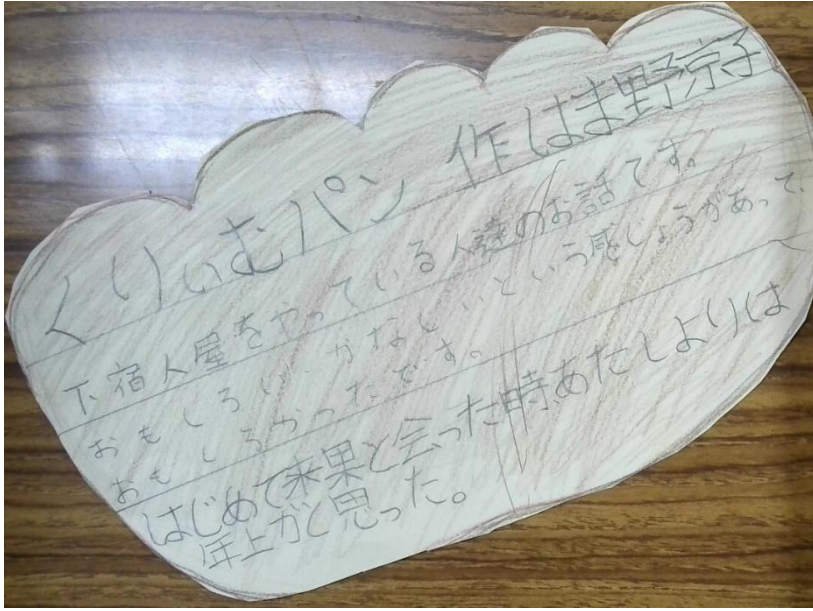 くりぃむパン 作はま野京子
下宿人屋をやっている人達のお話です。
おもしろい、かなしいという感じょうがあって、
おもしろかったです。
はじめて来果と会った時あたしよりは
年上かと思った。